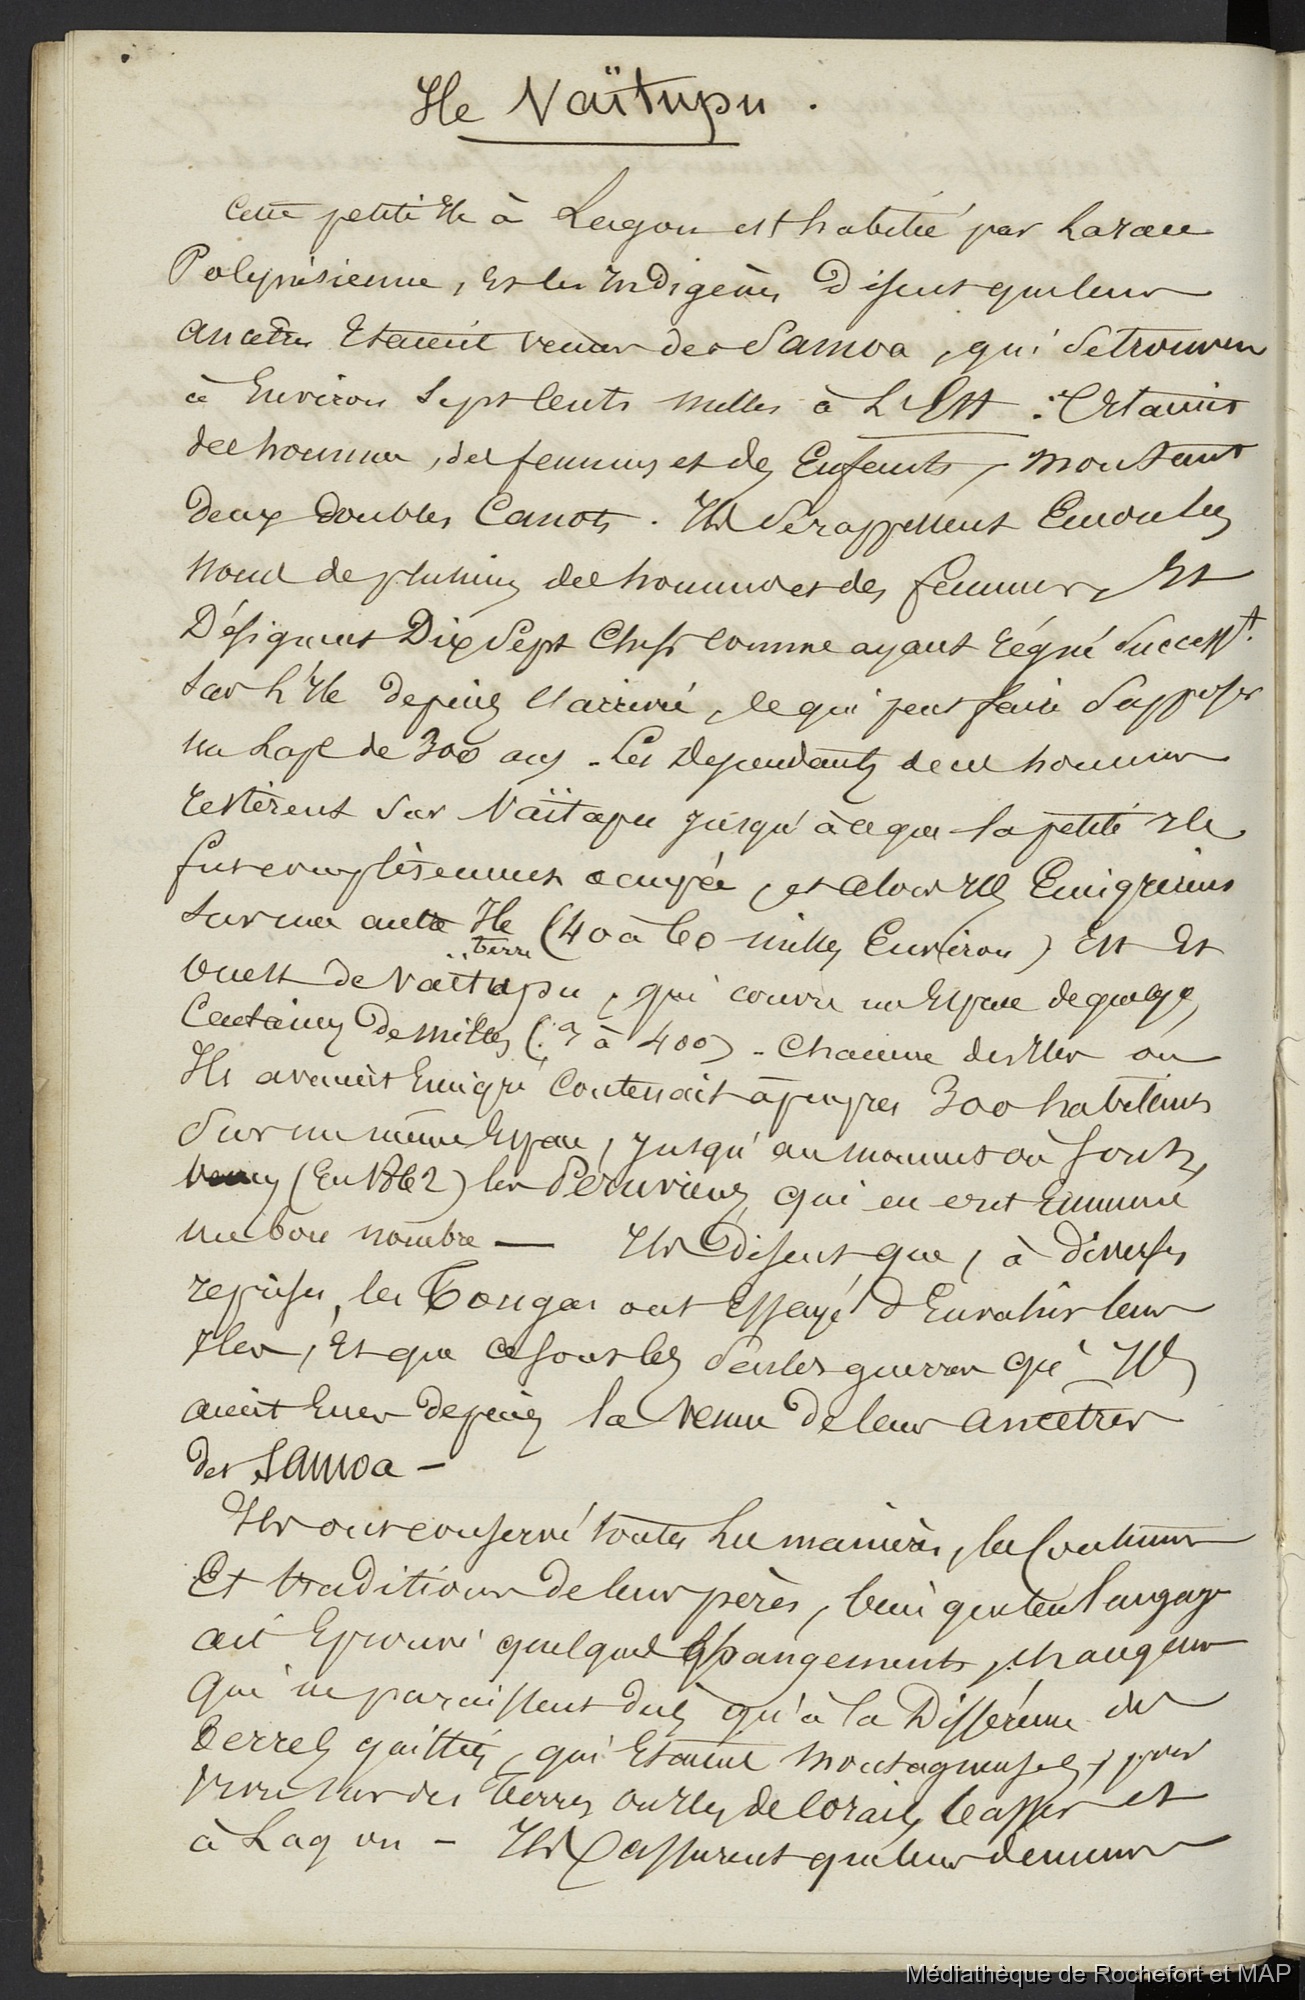 Ile Vaïtupu.
Cette petite Ile à Lagon est habitée par la race
Polynésienne, Et les Indigènes Disent que leurs
ancetres Etaient venus des Samoa, qui se trouvent
à Environ Sept Cents milles à L'Est : C'Etaient
des hommes, des femmes et des Enfants, montant
deux doubles Canots. Ils se rappellent Encore les
noms de plusieurs des hommes et des femmes, Et
Désignent Dix Sept Chefs comme ayant régné Successt.
Sur L'Ile depuis l'arrivée, ce qui peut faire Supposer
un Laps de 300 ans. Les Dependants de ces hommes
restèrent sur Vaïtupu jusqu'à ce que la petite Ile
fut complètement occupée, et alors Ils Emigrèrent
Sur une autre Ile (40 à 60 milles Environ) Est Et
terre
Ouest de Vaïtupu, qui couvre un Espace de quelques
Centaines De milles (3 à 400). Chacune des Iles où
Ils avaient Emigré Contenait à peu près 300 habitants
Sur un même Espace, jusqu'au moment où sont
venus (En 1862) les Péruviens, qui en ont Emmené
un bon nombre — Ils Disent que, à diverses
reprises, les Tongas ont Essayé D'Envahir leurs
Iles, Et que ce sont les Seules guerres qu'Ils
aient Eues depuis la venue De leurs ancetres
des Samoa –
Ils ont conservé toutes Les manières, les Coutumes
Et traditions de leurs pères, bien que leur langage
ait Eprouvé quelques changements, changements
qui ne paraissent dus qu'à la Différence des
Terres quittées, qui Etaient montagneuses, pour
vivre sur des Terres ou Iles de Corail, basses et
à Lagon – Ils assurent que leurs demeures
Médiathèque de Rochefort et MAP